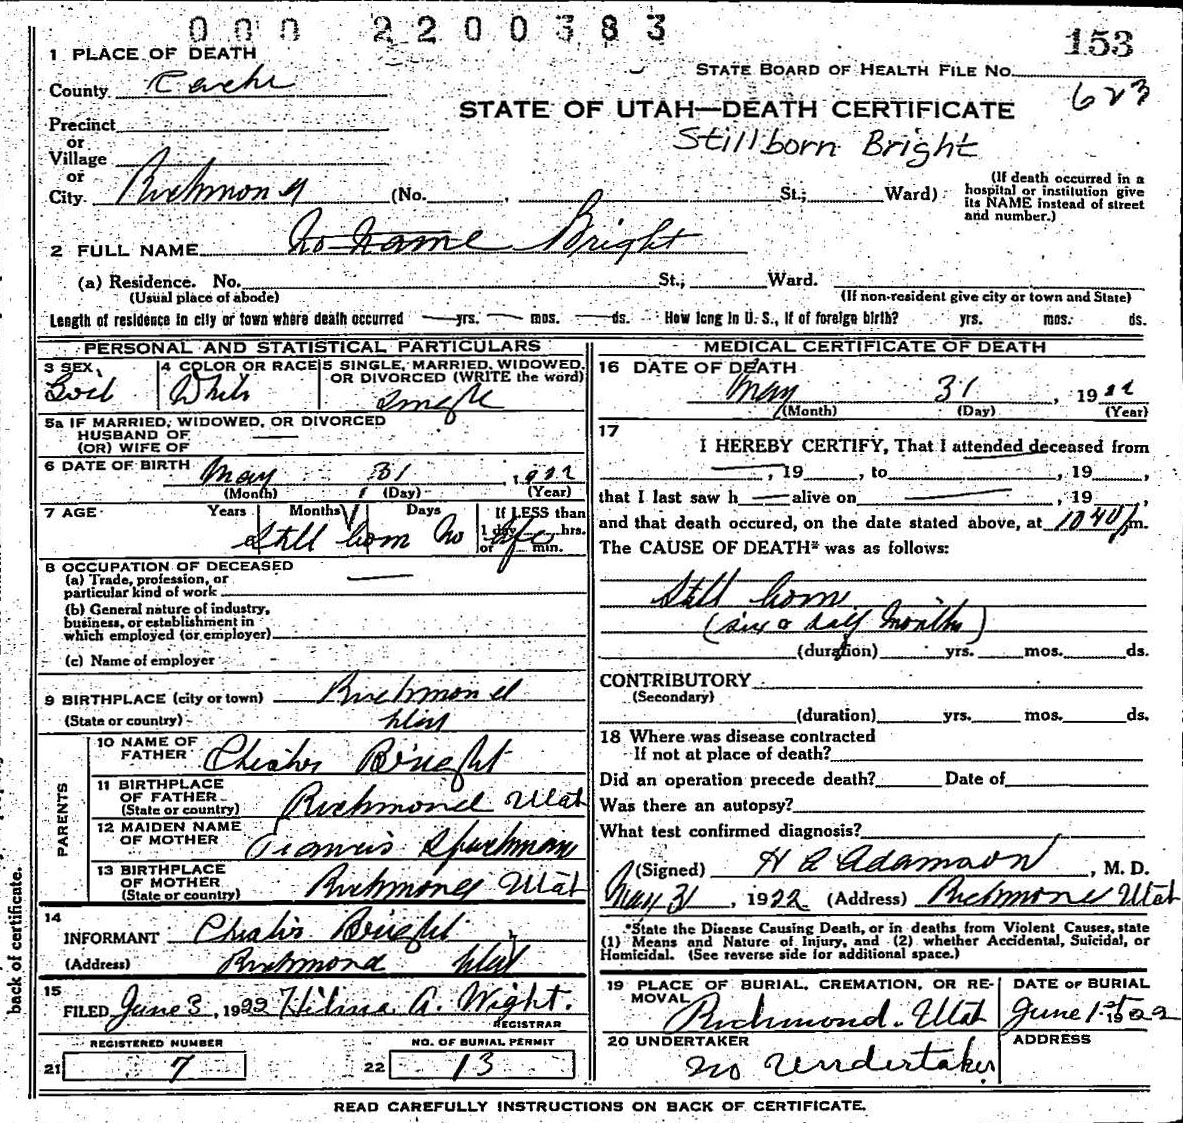 000 2200383
153
1 PLACE OF DEATH
STATE BOARD OF HEALTH FILE No.
County Cache
623
STATE OF UTAH—DEATH CERTIFICATE
Precinct
Stillborn Bright
or
Village
or
City Richmond (No. , St.; Ward)
(If death occurred in a hospital or institution give its NAME instead of street and number.)
2 FULL NAME No Name Bright
(a) Residence. No. St.; Ward.
(Usual place of abode) (If non-resident give city or town and State)
Length of residence in city or town where death occurred — yrs. — mos. — ds. How long in U. S., if of foreign birth? yrs. mos. ds.
PERSONAL AND STATISTICAL PARTICULARS
3 SEX 4 COLOR OR RACE 5 SINGLE, MARRIED, WIDOWED, OR DIVORCED (WRITE the word)
White Single
5a IF MARRIED, WIDOWED, OR DIVORCED
HUSBAND OF —
(OR) WIFE OF
6 DATE OF BIRTH May 31, 1922
(Month) (Day) (Year)
7 AGE Years Months Days If LESS than
1 day hrs.
or min.
Still born No life
8 OCCUPATION OF DECEASED
(a) Trade, profession, or
particular kind of work —
(b) General nature of industry,
business, or establishment in
which employed (or employer)
(c) Name of employer
9 BIRTHPLACE (city or town) Richmond
(State or country) Utah
PARENTS
10 NAME OF
FATHER Bright
11 BIRTHPLACE
OF FATHER
(State or country) Richmond Utah
12 MAIDEN NAME
OF MOTHER Francis
13 BIRTHPLACE
OF MOTHER
(State or country) Richmond Utah
14
INFORMANT Bright
(Address) Richmond Utah
15
FILED June 3, 1922 Hilma A. Wight.
REGISTRAR
REGISTERED NUMBER NO. OF BURIAL PERMIT
21 7 22 13
MEDICAL CERTIFICATE OF DEATH
16 DATE OF DEATH
May 31, 1922
(Month) (Day) (Year)
17
I HEREBY CERTIFY, That I attended deceased from
—, 19 , to , 19 ,
that I last saw h — alive on —, 19 ,
and that death occured, on the date stated above, at 10 40 p m.
The CAUSE OF DEATH* was as follows:
Still born
(six & half months)
(duration) yrs. mos. ds.
CONTRIBUTORY
(Secondary)
(duration) yrs. mos. ds.
18 Where was disease contracted
If not at place of death?
Did an operation precede death? Date of
Was there an autopsy?
What test confirmed diagnosis?
(Signed) Adamson, M. D.
May 31, 1922 (Address) Richmond Utah
*State the Disease Causing Death, or in deaths from Violent Causes, state
(1) Means and Nature of Injury, and (2) whether Accidental, Suicidal, or
Homicidal. (See reverse side for additional space.)
19 PLACE OF BURIAL, CREMATION, OR RE-
MOVAL
Richmond. Utah
DATE OF BURIAL
June 1st 1922
20 UNDERTAKER
No Undertaker
ADDRESS
READ CAREFULLY INSTRUCTIONS ON BACK OF CERTIFICATE.
back of certificate.